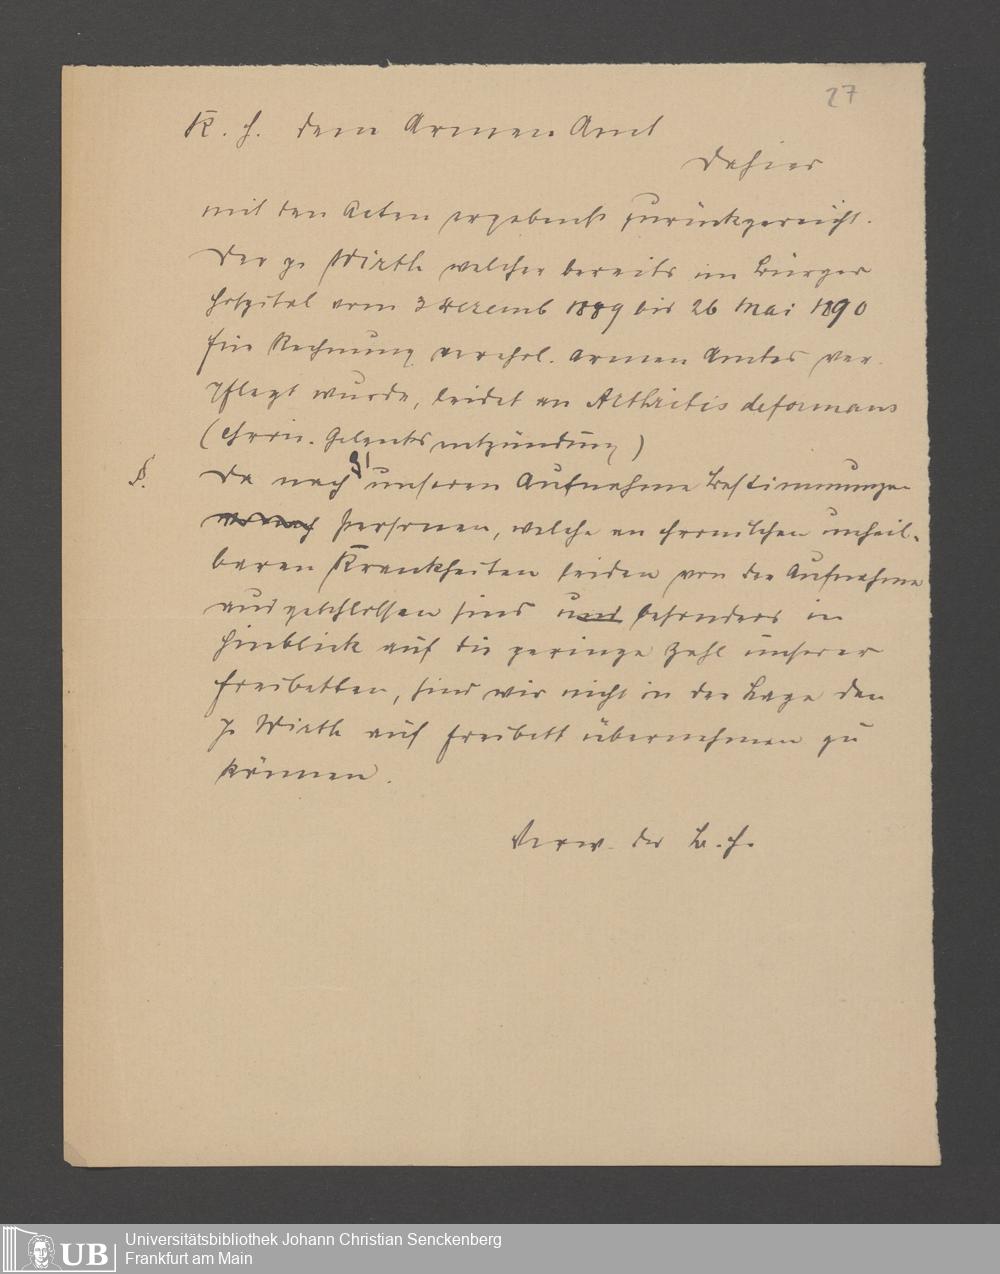 27
K. H. dem Armen Amt
Dahier
mit den Acten ergebenst zurückgereicht.
Der p. Wirth welcher bereits im Bürger
hospital vom 3 Dezemb 1889 bis 26 Mai 1890
für Rechnung verehrl. Armen Amtes ver-
pflegt wurde, leidet an Arthritis deformans
(chron. Gelenksentzündung)
§. Da nach § 1 unseren Aufnahme Bestimmungen
Personen, welche an chronischen unheil-
baren Krankheiten leiden von der Aufnahme
ausgeschlossen sind und besonders in
Hinblick auf die geringe Zahl unserer
Freibetten, sind wir nicht in der Lage den
p. Wirth auf Freibett übernehmen zu
können.
Verw. des B. H.
UB
Universitätsbibliothek Johann Christian Senckenberg
Frankfurt am Main